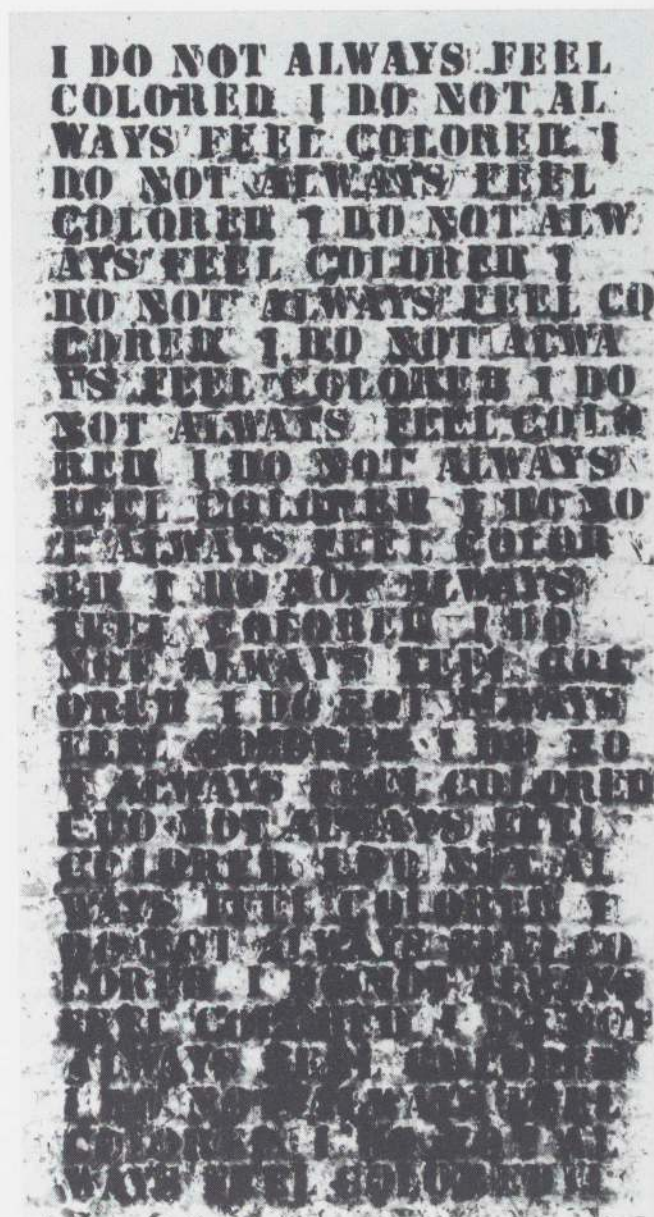 I DO NOT ALWAYS FEEL
COLORED I DO NOT AL
WAYS FEEL COLORED I
DO NOT ALWAYS FEEL
COLORED I DO NOT ALW
AYS FEEL COLORED I
DO NOT ALWAYS FEEL CO
LORED I DO NOT ALWA
YS FEEL COLORED I DO
NOT ALWAYS FEEL COLO
RED I DO NOT ALWAYS
FEEL COLORED I DO NO
T ALWAYS FEEL COLOR
ED I DO NOT ALWAYS
FEEL COLORED I DO
NOT ALWAYS FEEL COL
ORED I DO NOT ALWAYS
FEEL COLORED I DO NO
T ALWAYS FEEL COLORED
I DO NOT ALWAYS FEEL
COLORED I DO NOT AL
WAYS FEEL COLORED I
DO NOT ALWAYS FEEL CO
LORED I DO NOT ALWAYS
FEEL COLORED I DO NOT
ALWAYS FEEL COLORED
I DO NOT ALWAYS FEEL
COLORED I DO NOT AL
WAYS FEEL COLORED I